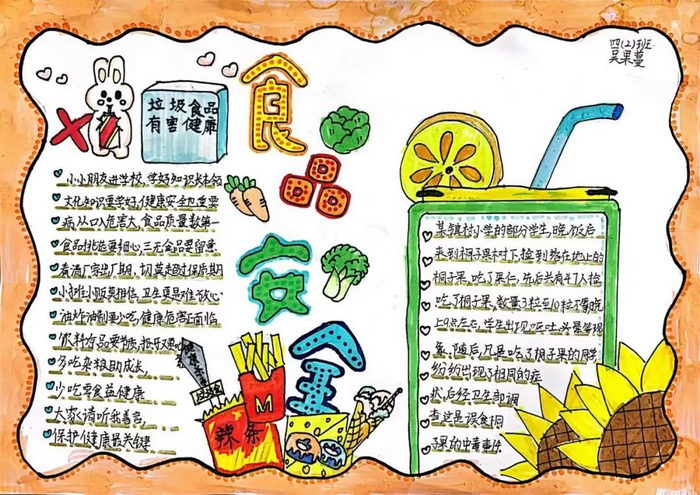 四(2)班
吴果蔓
垃圾食品
有害健康
食
品
安
全
小小朋友进学校,学好知识长本领
文化知识要学好,健康安全更重要
病从口入危害大,食品质量数第一
食品挑选要细心,三无食品要留意
看清厂家出厂期,切莫超过保质期
小摊小贩莫相信,卫生更是难放心
油炸油制要少吃,健康危害正面临
饮料存品要节制,
多吃杂粮助成长,
少吃零食益健康
大家请听我善言,
保护健康最关键
辣条
M
某镇村小学的部分学生,晚饭后
来到桐子果树下,捡到落在地上的
桐子果,吃了果仁,先后共有47人捡
吃了桐子果,数量3粒至10粒不等晚
上9点左右,学生出现呕吐
象,随后,凡是吃了桐子果的同学
纷纷出现了相同的症
状,后经卫生部调
查这是误食桐
子果的中毒事件.